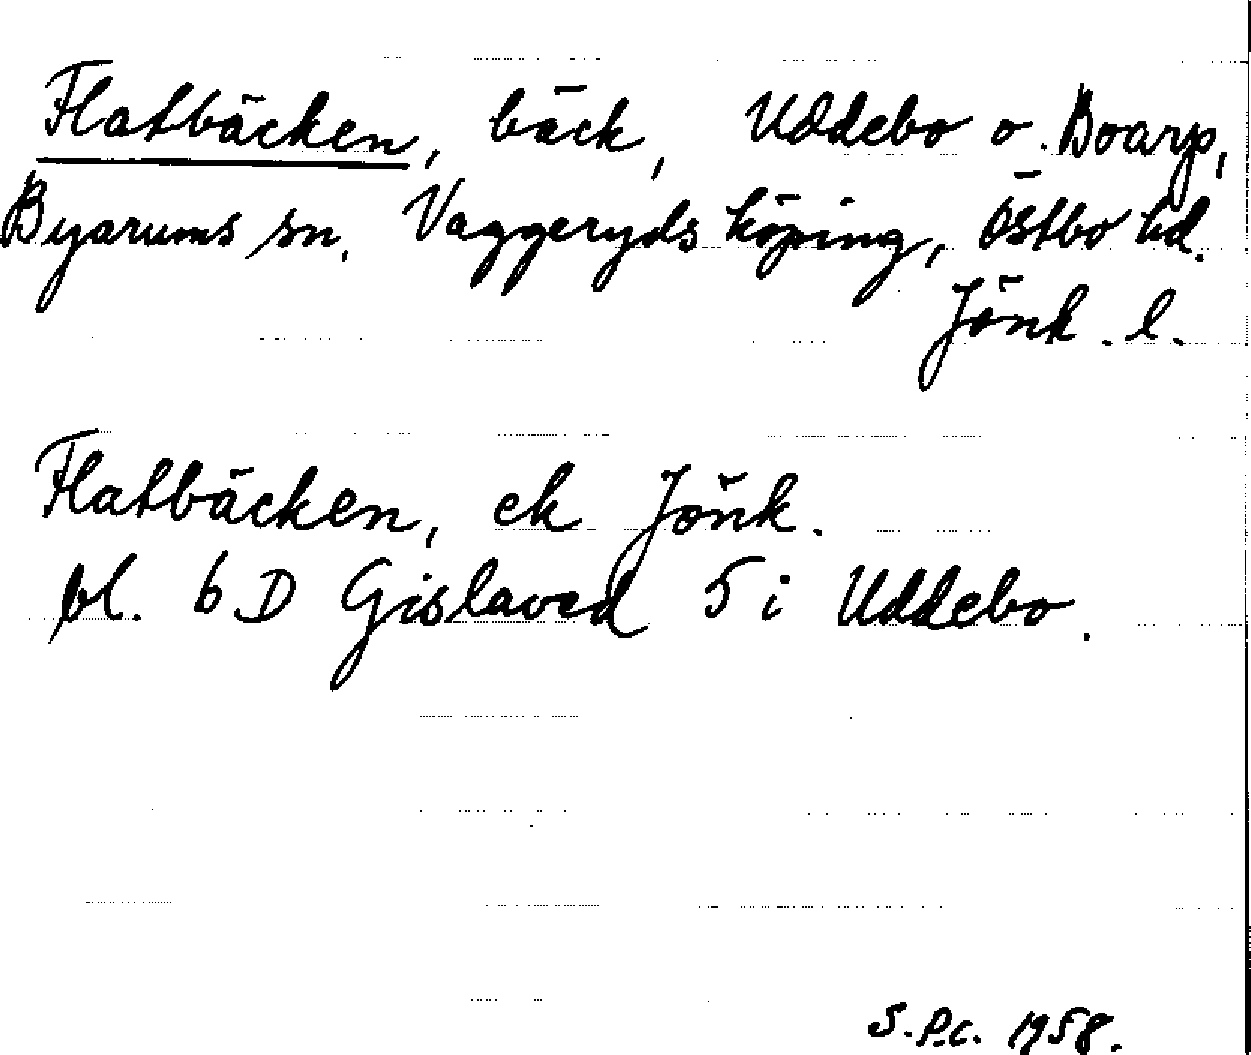 Flatbäcken, bäck, Uddebo o. Boarp,
Byarums sn. Vaggeryds köping, Östbo hd.
Jönk. l.
Flatbäcken, ek Jönk.
bl. 6 D Gislaved 5 i Uddebo.
S.P.C. 1958.